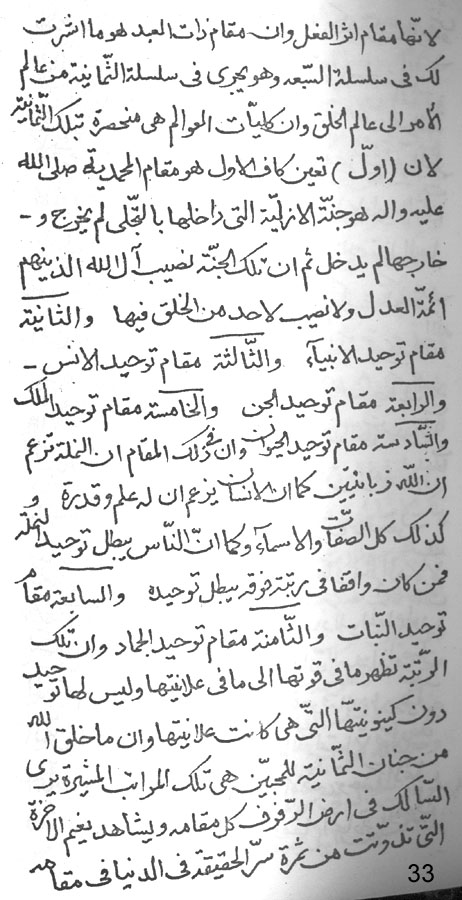 لانّها مقام اثر الفعل وان مقام ذات العبد هو ما اشرت
لك فى سلسلة السّبعه وهو يجرى فى سلسلة الثّمانية من عالم
الأمر الى عالم الخلق وان كليّات العوالم هى منحصرة بتلك الثّمانيّة
لان (اولّ) تعين كاف الاول هو مقام المحمدية صلى الله
عليه واله هو جنّة الازليّة التى داخلها بالتجلّى لم يخرج و -
خارجها لم يدخل ثم ان تلك الجنّة نصيب آل الله الذينهم
ائمّة العدل ولا نصيب لاحد من الخلق فيها والثانية
مقام توحيد الانبيآء والثّالثة مقام توحيد الانس -
والرابعة مقام توحيد الجن والخامسة مقام توحيد الملك
والسّادسة مقام توحيد الحيوان وان فى ذلك المقام ان النملة تزعم
ان اللّه زبانيتين كما ان الانسان يزعم ان له علم وقدرة و
كذلك كل الصفات والاسمآء وكما انّ النّاس يبطل توحيد النملة
فمن كان واقفا فى رتبة فوقه يبطل توحيده والسابعة مقام
توحيد النّبات والثّامنة مقام توحيد الجماد وان تلك
الرتّبة تظهر ما فى قوتها الى ما فى علانيتها وليس لها توحيد
دون كينونيتها التّى هى كانت علانيتها وان ما خلق الله
من جنان الثّمانية للمحبيّن هى تلك المراتب المشيرة يرى
السّالك فى ارض الرّفرف كل مقامه ويشاهد نعيم الاخرة
التّى تذوّتت من ثمرة سرّ الحقيقة فى الدنيا فى مقامه
33